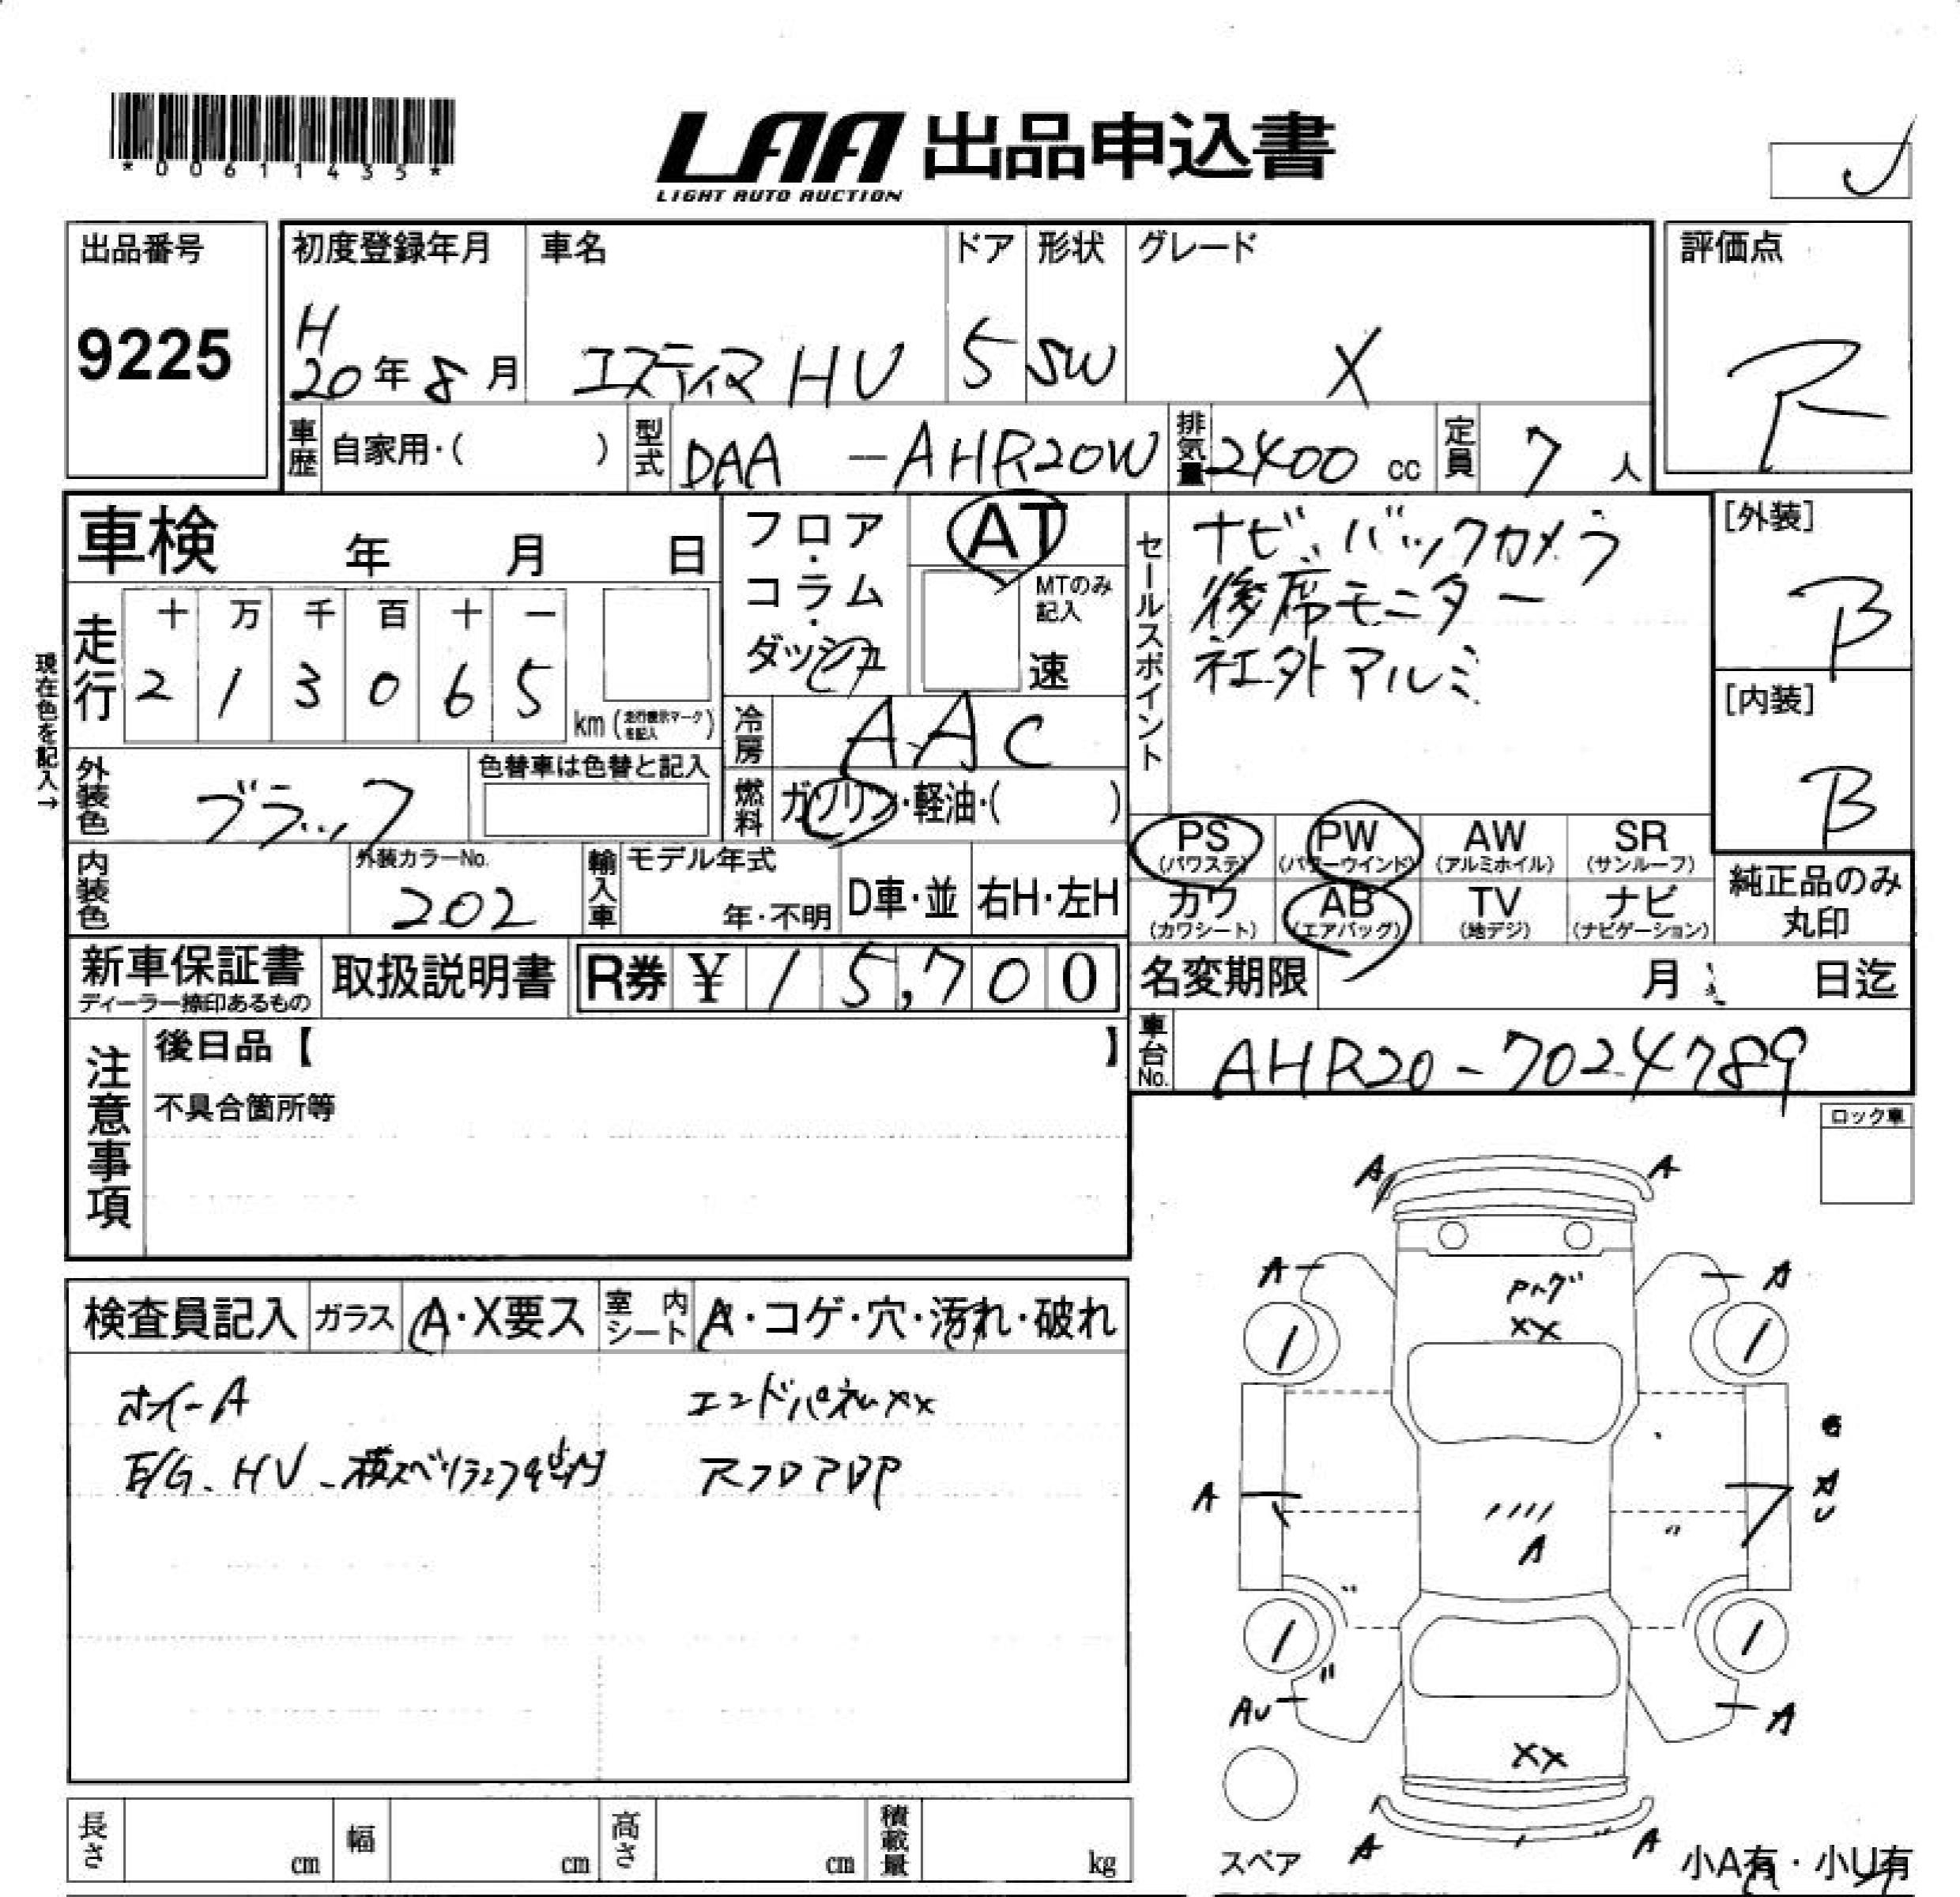 *00611435*
LAA 出品申込書
LIGHT AUTO AUCTION
出品番号
9225
初度登録年月
H
20年8月
車名
エスティマ HV
ドア
5
形状
SW
グレード
X
評価点
R
車歴 自家用・( )
型式 DAA -AHR20W
排気量 2400 cc
定員 7 人
車検 年 月 日
現在色を記入→
走行
十 万 千 百 十 一
2 1 3 0 6 5
km(走行表示マークを記入)
フロア・コラム・ダッシュ
AT
MTのみ記入
速
冷房 AAC
燃料 ガソリン・軽油・( )
外装色 ブラック
色替車は色替と記入
内装色
外装カラーNo.
202
輸入車
モデル年式
年・不明
D車・並
右H・左H
セールスポイント
ナビ、バックカメラ
後席モニター
社外アルミ
[外装]
B
[内装]
B
PS (パワステ)
PW (パワーウインド)
AW (アルミホイル)
SR (サンルーフ)
カワ (カワシート)
AB (エアバッグ)
TV (地デジ)
ナビ (ナビゲーション)
純正品のみ丸印
新車保証書
ディーラー捺印あるもの
取扱説明書
R券 ¥ 15,700
名変期限 月 日迄
車台No. AHR20-7024789
注意事項
後日品【 】
不具合箇所等
ロック車
検査員記入
ガラス A・X要ス
室内シート A・コゲ・穴・汚れ・破れ
ホイールA
エンドパネルXX
E/G、HV
RフロアBP
A A
A A
XX
A
A
U
A
AU
A
XX
A A
スペア
小A有・小U有
長さ cm
幅 cm
高さ cm
積載量 kg